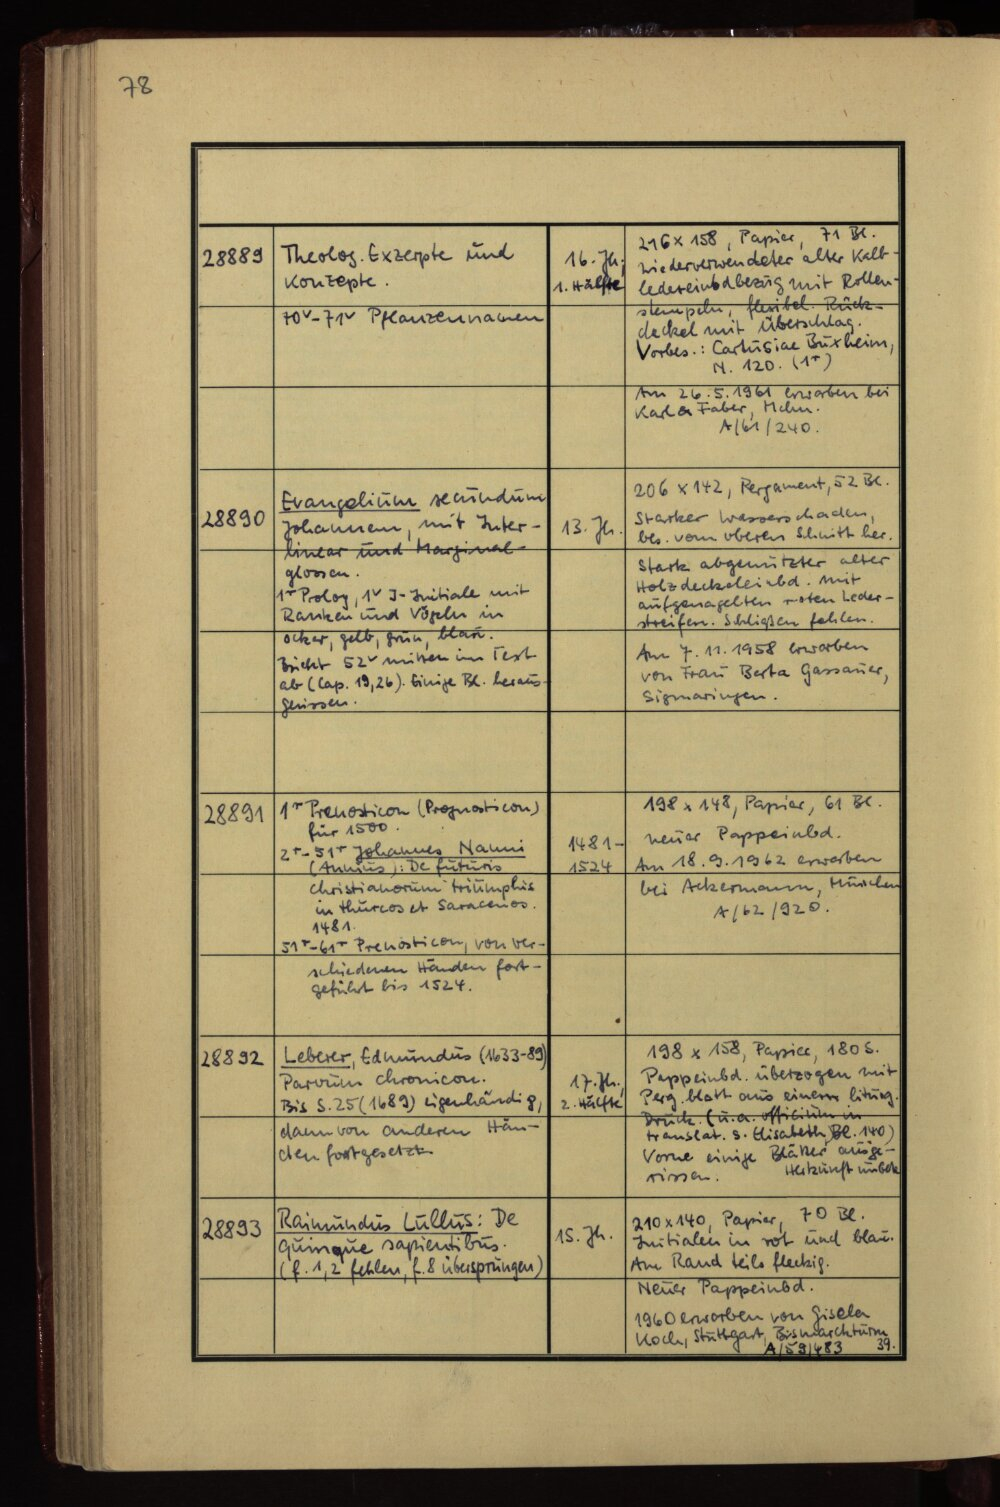 78
28889
Theolog. Exzerpte und
Konzepte.
70v-71v Pflanzennamen
16. Jh.,
1. Hälfte
216 x 158, Papier, 71 Bl.
Wiederverwendeter alter Kalb-
ledereinbdbezug mit Rollen-
stempeln, flexibel. Rück-
deckel mit Überschlag.
Vorbes.: Cartusiae Buxheim,
N. 120. (1r)
Am 26.5.1961 erworben bei
Karl & Faber, Mchn.
A/61/240.
28890
Evangelium secundum
Johannem, mit Inter-
linear und Marginal-
glossen.
1r Prolog, 1v I-Initiale mit
Ranken und Vögeln in
ocker, gelb, grün, blau.
Bricht 52v mitten im Text
ab (Cap. 19,26). Einige Bl. heraus-
gerissen.
13. Jh.
206 x 142, Pergament, 52 Bl.
Starker Wasserschaden,
bes. vom oberen Schnitt her.
Stark abgenützter alter
Holzdeckeleinbd. mit
aufgenagelten roten Leder-
streifen. Schließen fehlen.
Am 7.11.1958 erworben
von Frau Berta Gassauer,
Sigmaringen.
28891
1r Prenosticon (Prognosticon)
für 1500.
2r-51r Johannes Nanni
(Annius): De futuris
christianorum triumphis
in thurcos et Saracenos.
1481.
51r-61r Prenosticon, von ver-
schiedenen Händen fort-
geführt bis 1524.
1481-
1524
198 x 148, Papier, 61 Bl.
neuer Pappeinbd.
Am 18.9.1962 erworben
bei Ackermann, München
A/62/920.
28892
Leberer, Edmundus (1633-89)
Parvum chronicon.
Bis S. 25 (1689) eigenhändig,
dann von anderen Hän-
den fortgesetzt
17. Jh.,
2. Hälfte
198 x 158, Papier, 180 S.
Pappeinbd. überzogen mit
Perg.blatt aus einem liturg.
Druck. (u.a. officium in
translat. S. Elisabeth, Bl. 140)
Vorne einige Blätter ausge-
rissen. Herkunft unbek
28893
Raimundus Lullus: De
quinque sapientibus.
(f. 1,2 fehlen, f. 8 übersprungen)
15. Jh.
210 x 140, Papier, 70 Bl.
Initialen in rot und blau.
Am Rand teils fleckig.
Neuer Pappeinbd.
1960 erworben von Gisela
Koch, Stuttgart, Bismarckturm
A/59/483 39.